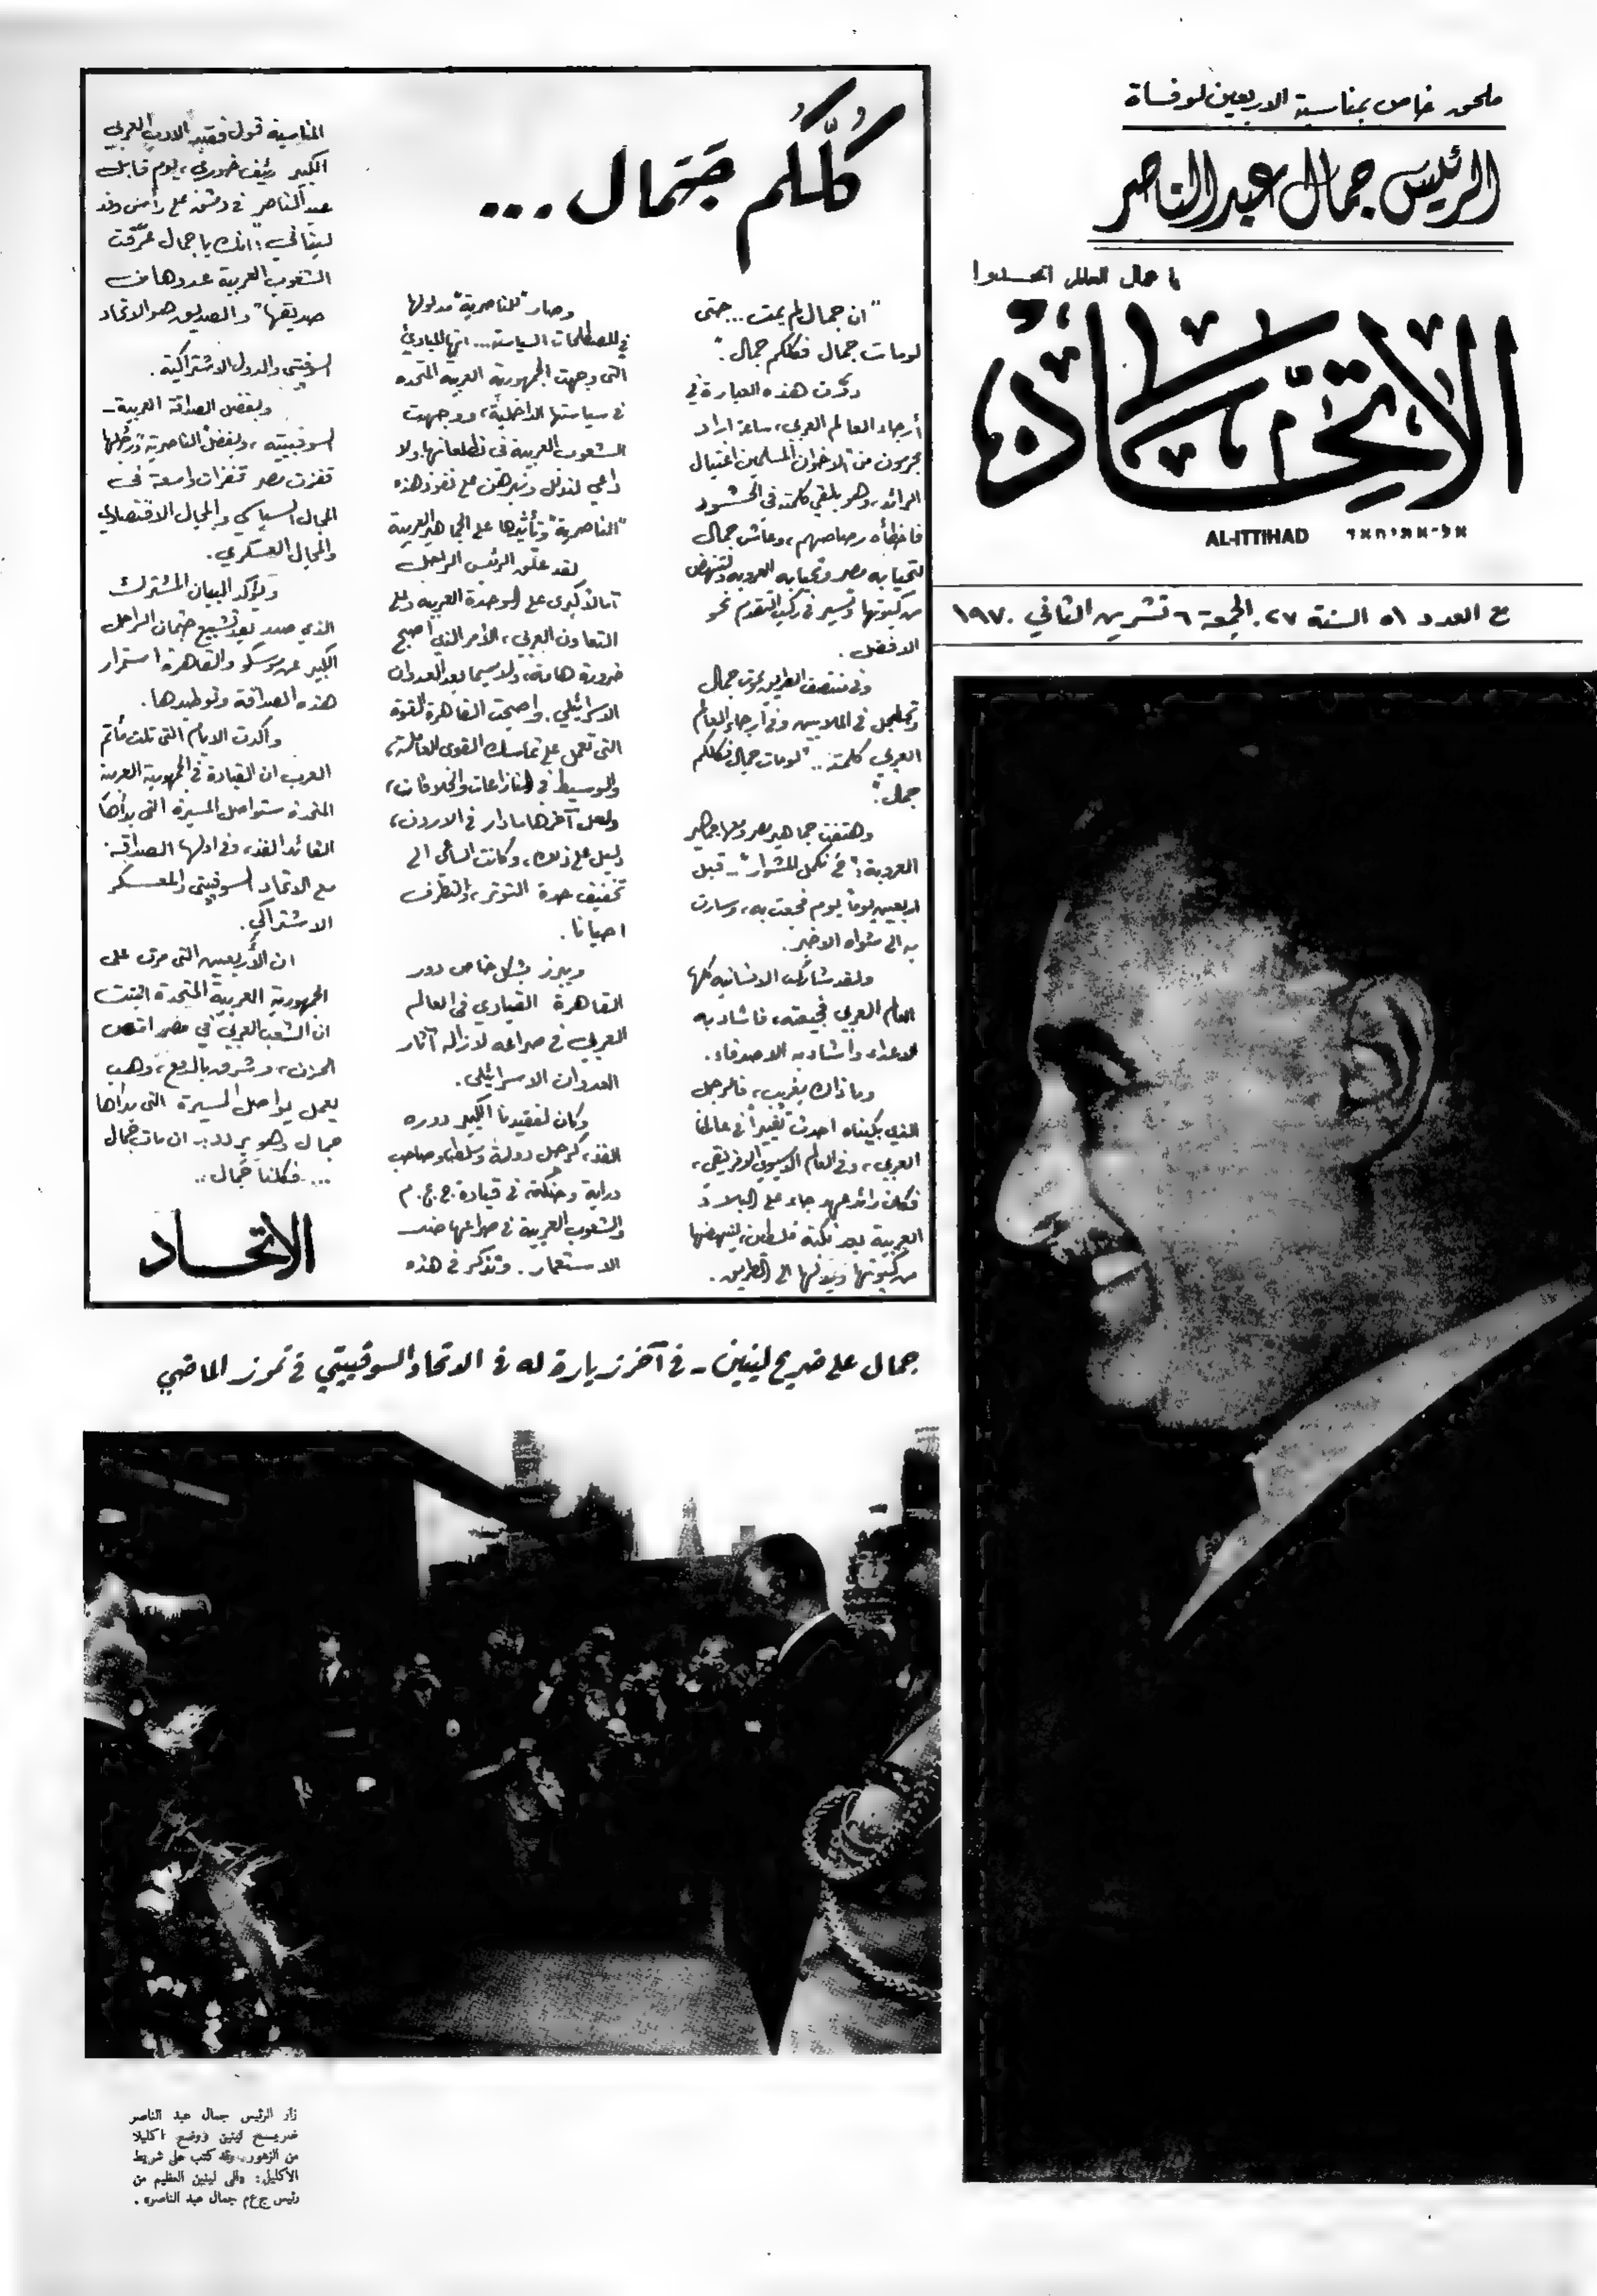 ملحق خاص بمناسبة الاربعين لوفاة
الرئيس جمال عبد الناصر
يا عمال العالم اتحدوا
الاتحاد
AL-ITTIHAD אל-אתיחאד
مع العدد ٥١ السنة ٢٧. الجمعة ٦ تشرين الثاني ١٩٧٠
كُلُّكُم جَمَال ...
"ان جمال لم يمت... حتى
لو مات جمال فكلكم جمال".
دوّت هذه العبارة في
أرجاء العالم العربي، ساعة اراد
مجرمون من "الاخوان المسلمين" اغتيال
الرائد، وهو يلقي كلمته في الحشود
فاخطأه رصاصهم، وعاش جمال
لتحيا به مصر وتحيا به العروبة ولتنهض
من كبوتها وتسير في ركب التقدم نحو
الافضل.
وفي منتصف الطريق يموت جمال
وتجلجل في الملايين وفي أرجاء العالم
العربي كلمته.. "لو مات جمال فكلكم
جمال".
وهتفت جماهير مصر ومعها جماهير
العروبة: "نحن نكمل المشوار" – قبل
اربعين يوماً يوم فجعت به، وسارت
به الى مثواه الاخير.
ولقد شاركت الانسانية كلها
العالم العربي فجيعته، فاشاد به
الاعداء وأشاد به الاصدقاء.
وما ذاك بغريب، فالرجل
الذي بكيناه احدث تغييراً في عالمنا
العربي، وفي العالم الآسيوي الافريقي،
فكان رائد عهد جاء على البلاد
العربية بعد نكبة فلسطين، لينهضها
من كبوتها ويدفعها الى الطريق.
وصار "للناصرية" مدلولها
في المصطلحات السياسية... انها المبادئ
التي وجهت الجمهورية العربية المتحدة
في سياستها الداخلية، ووجهت
الشعوب العربية في تطلعاتها، ولا
داعي لندلل ونبرهن على نفوذ هذه
"الناصرية" وتأثيرها على الجماهير العربية
لقد علّق الرئيس الراحل
آمالاً كبرى على الوحدة العربية وعلى
التعاون العربي، الأمر الذي أصبح
ضرورة هامة، ولا سيما بعد العدوان
الاسرائيلي. واصبحت القاهرة القوة
التي تعمل على تماسك القوى العاملة،
والوسيط في المنازعات والخلافات،
ولعل آخرها ما دار في الاردن،
دليل على ذلك، وكانت الساعي الى
تخفيف حدة التوتر، والتطرف
احيانا.
ويبرز بشكل خاص دور
القاهرة القيادي في العالم
العربي في صراعه لازالة آثار
العدوان الاسرائيلي.
وكان لفقيدنا الكبير دوره
الفذ، كرجل دولة وسلطة، وصاحب
دراية وحنكة في قيادة ج.ع.م
والشعوب العربية في صراعها ضد
الاستعمار. ونذكر في هذه
المناسبة قول فقيد الادب العربي
الكبير رئيف خوري، يوم قابل
عبد الناصر في دمشق على رأس وفد
لبناني: "انك يا جمال عرّفت
الشعوب العربية عدوها من
صديقها" والصديق هو الاتحاد
السوفييتي والدول الاشتراكية.
وبفضل الصداقة العربية –
السوفييتية، وبفضل "الناصرية" ورجلها
قفزت مصر قفزات واسعة في
المجال السياسي والمجال الاقتصادي
والمجال العسكري.
ويؤكد البيان المشترك
الذي صدر بعد تشييع جثمان الراحل
الكبير عن موسكو والقاهرة استمرار
هذه الصداقة وتوطيدها.
وأكدت الايام التي تلت مأتم
العرب ان القيادة في الجمهورية العربية
المتحدة ستواصل المسيرة التي بدأها
القائد الفذ، وفي اولها الصداقة
مع الاتحاد السوفييتي والمعسكر
الاشتراكي.
ان الأربعين التي مرت على
الجمهورية العربية المتحدة اثبتت
ان الشعب العربي في مصر
الحزن، وشرق بالدمع، وهب
يعمل يواصل المسيرة التي بدأها
جمال وهو يردد: ان مات جمال
... فكلنا جمال..
الاتحاد
جمال على ضريح لينين - في آخر زيارة له في الاتحاد السوفييتي في تموز الماضي
زار الرئيس جمال عبد الناصر
ضريح لينين ووضع اكليلا
من الزهور، وقد كتب على شريط
الاكليل: «الى لينين العظيم من
رئيس ج.ع.م جمال عبد الناصر».